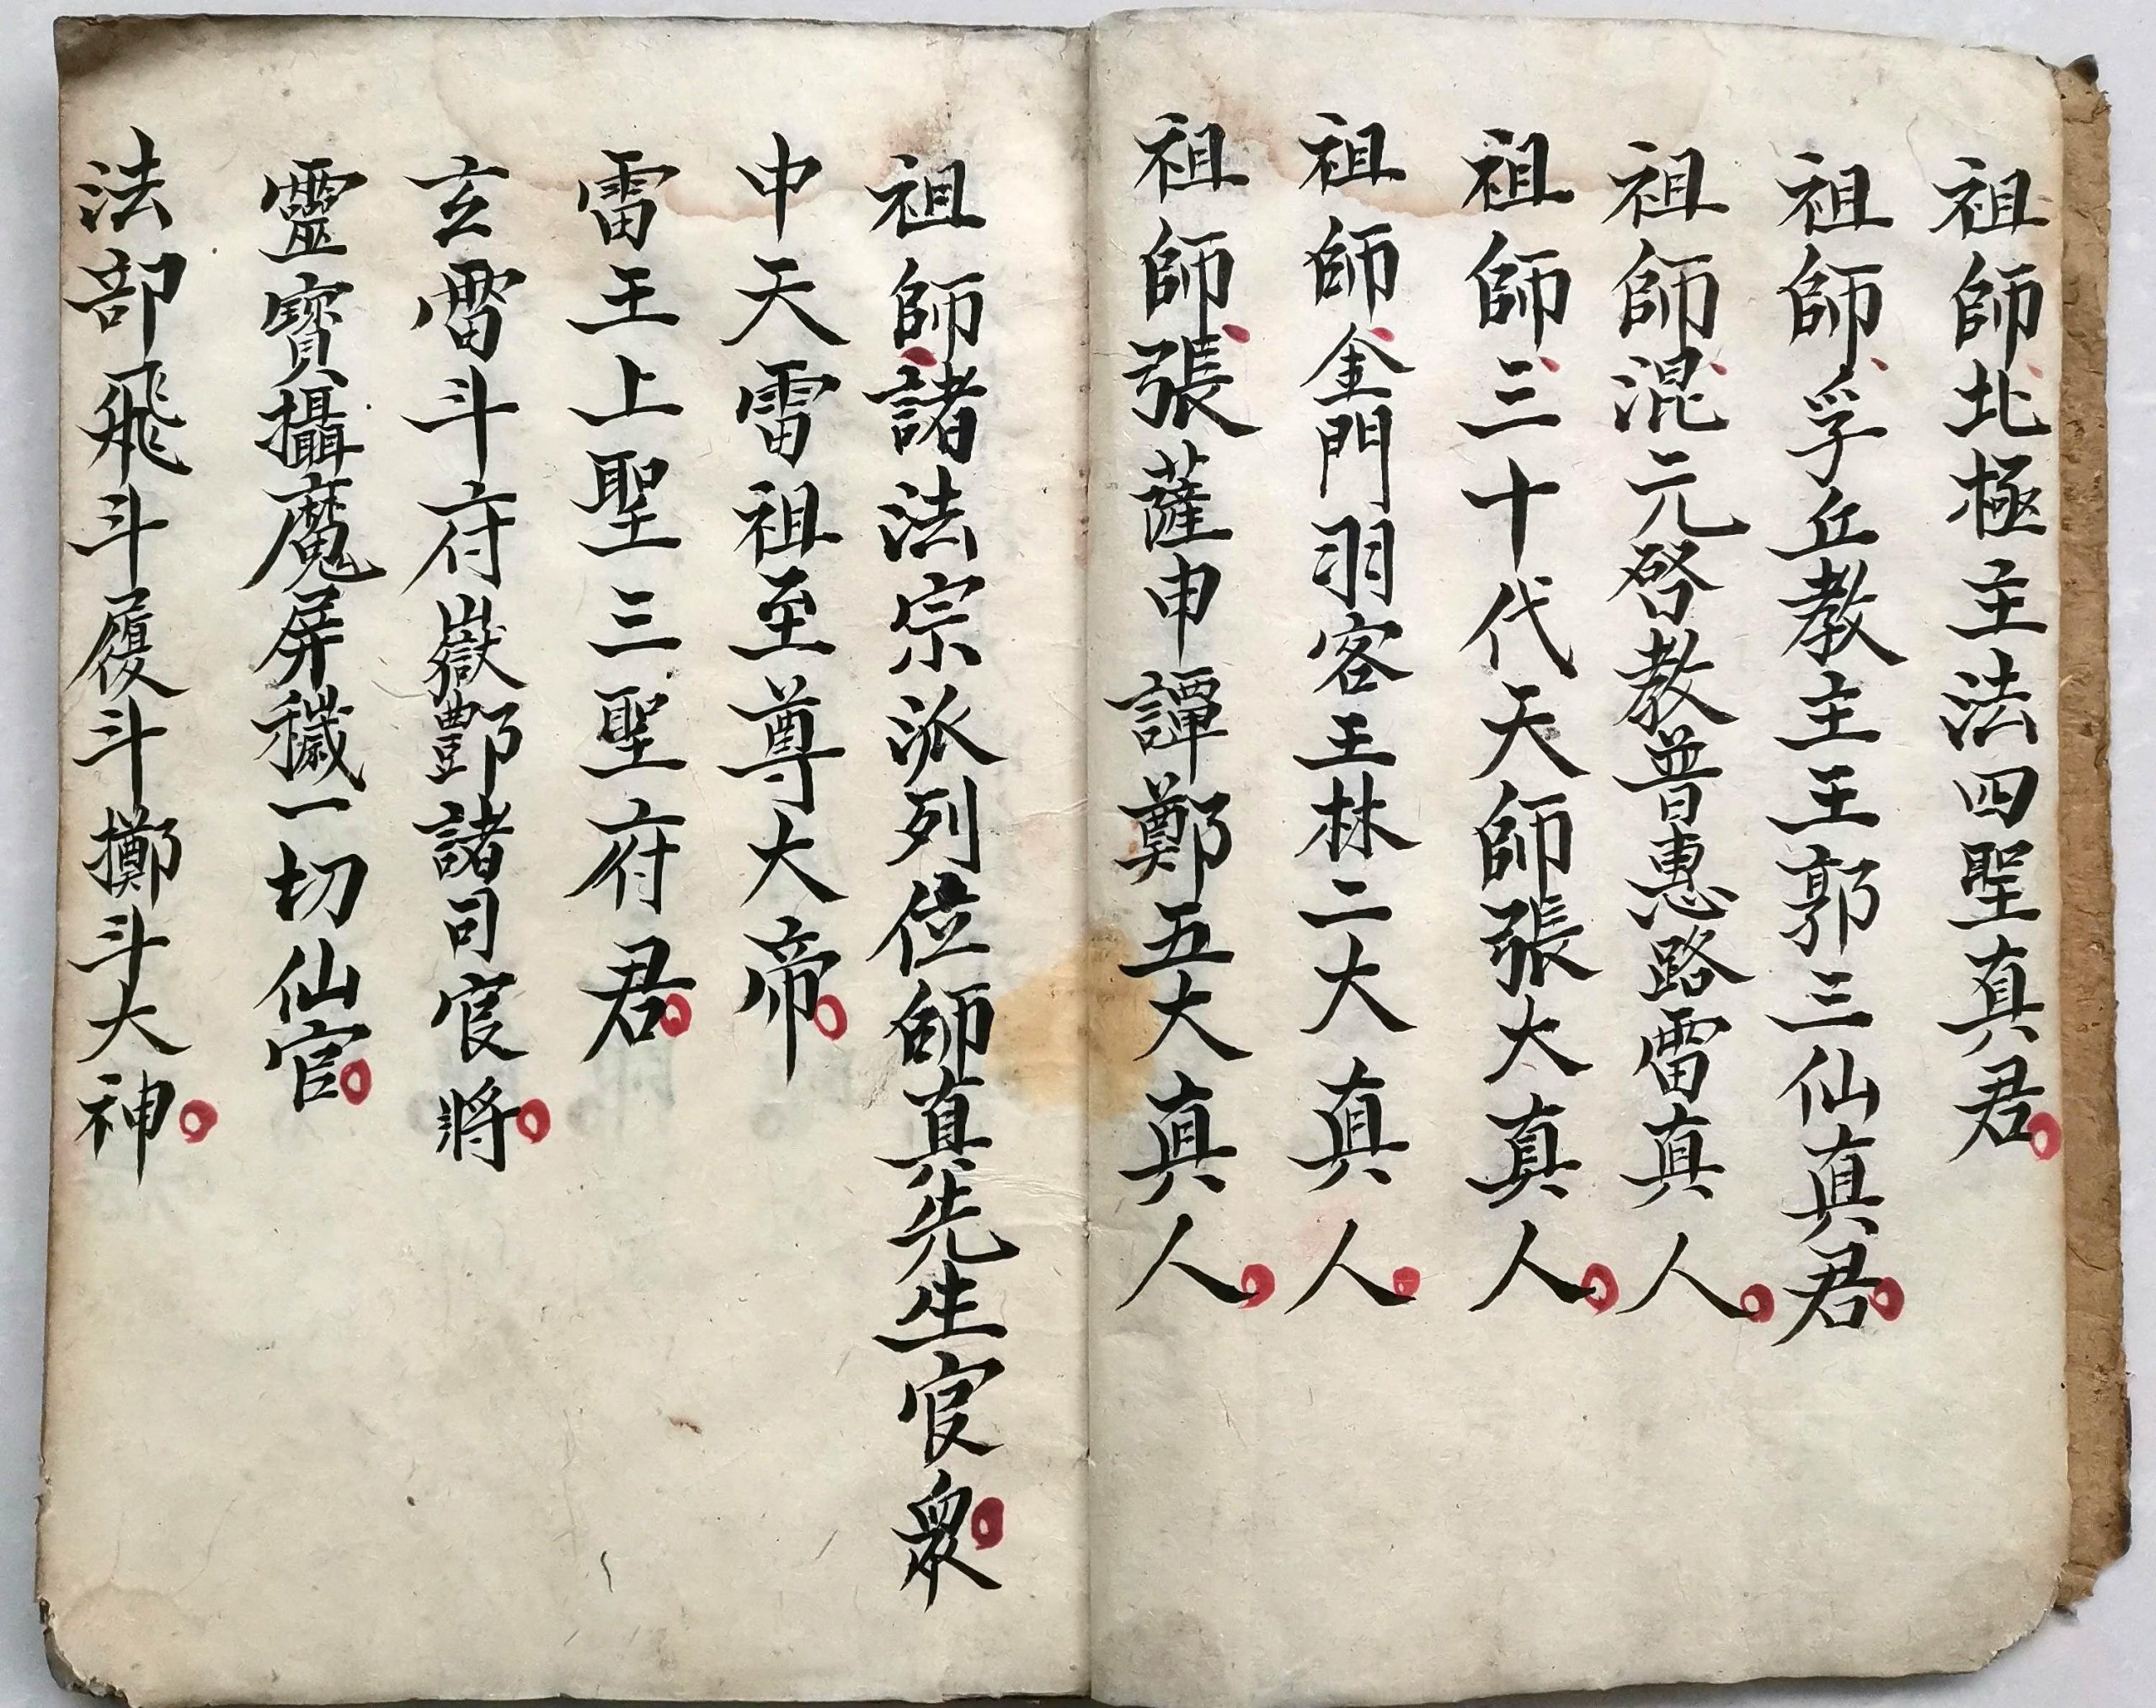 祖師北極主法四聖真君
祖師孚丘教主王郭三仙真君
祖師混元啓教普惠路雷真人
祖師三十代天師張大真人
祖師金門羽客王林二大真人
祖師張薩申譚鄭五大真人
祖師諸法宗派列位師真先生官眾
中天雷祖至尊大帝
雷王上聖三聖府君
玄雷斗府嶽酆諸司官將
靈寶攝魔屏穢一切仙官
法部飛斗履斗擲斗大神